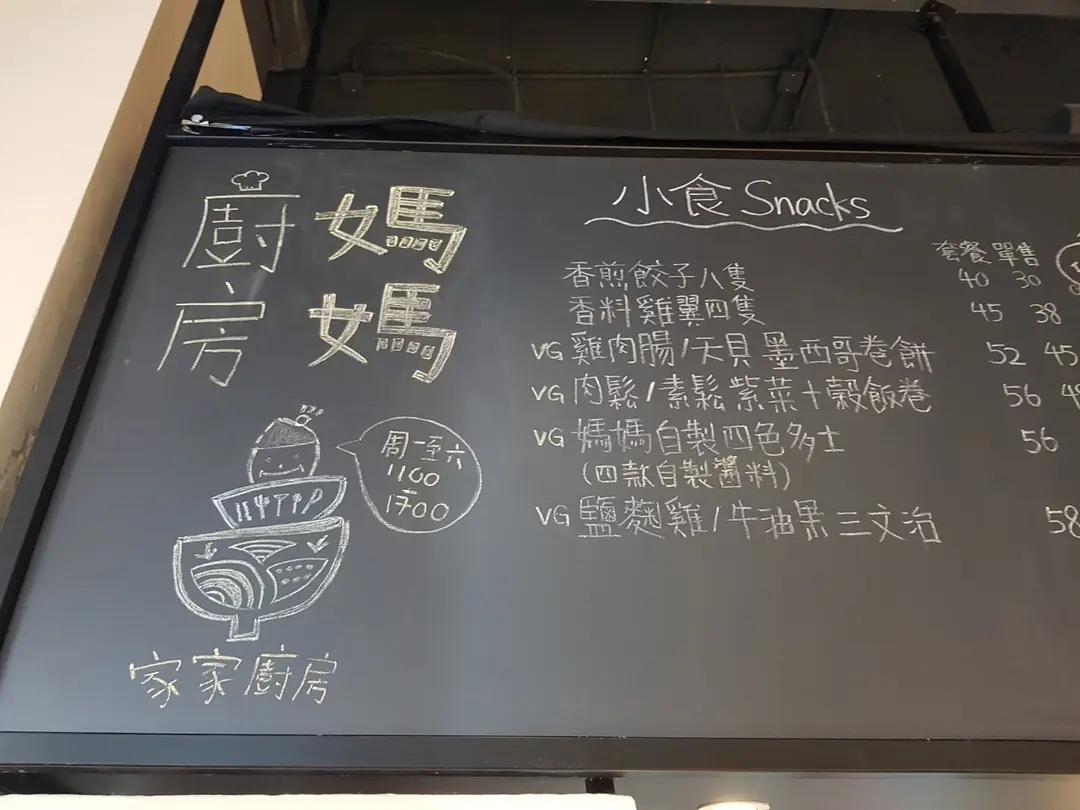 媽媽
廚房
周一至六
1100
-
1700
家家廚房
小食 Snacks
套餐 單售
香煎餃子八隻 40 30
香料雞翼四隻 45 38
VG 雞肉腸/天貝 墨西哥卷餅 52 45
VG 肉鬆/素鬆紫菜十穀飯卷 56
VG 媽媽自製四色多士 56
(四款自製醬料)
VG 鹽麴雞/牛油果三文治 58